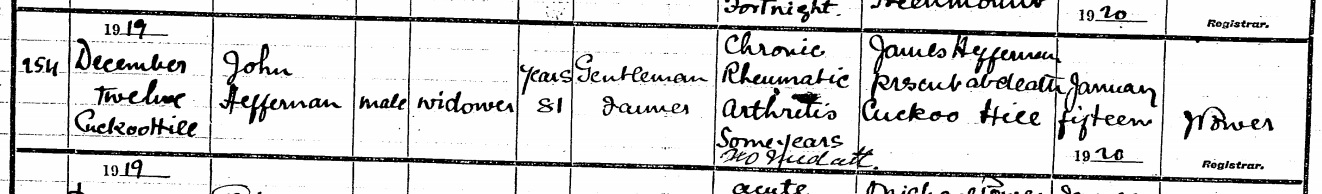 Fortnight.
1920
Registrar.
1919
254
December
twelve
Cuckoo Hill
John
Heffernan
male
widower
years
81
Gentleman
Farmer
Chronic
Rheumatic
Arthritis
Some years
No Med att.
James Heffernan
present at death
Cuckoo Hill
January
fifteen
1920
Power
Registrar.
1919
acute